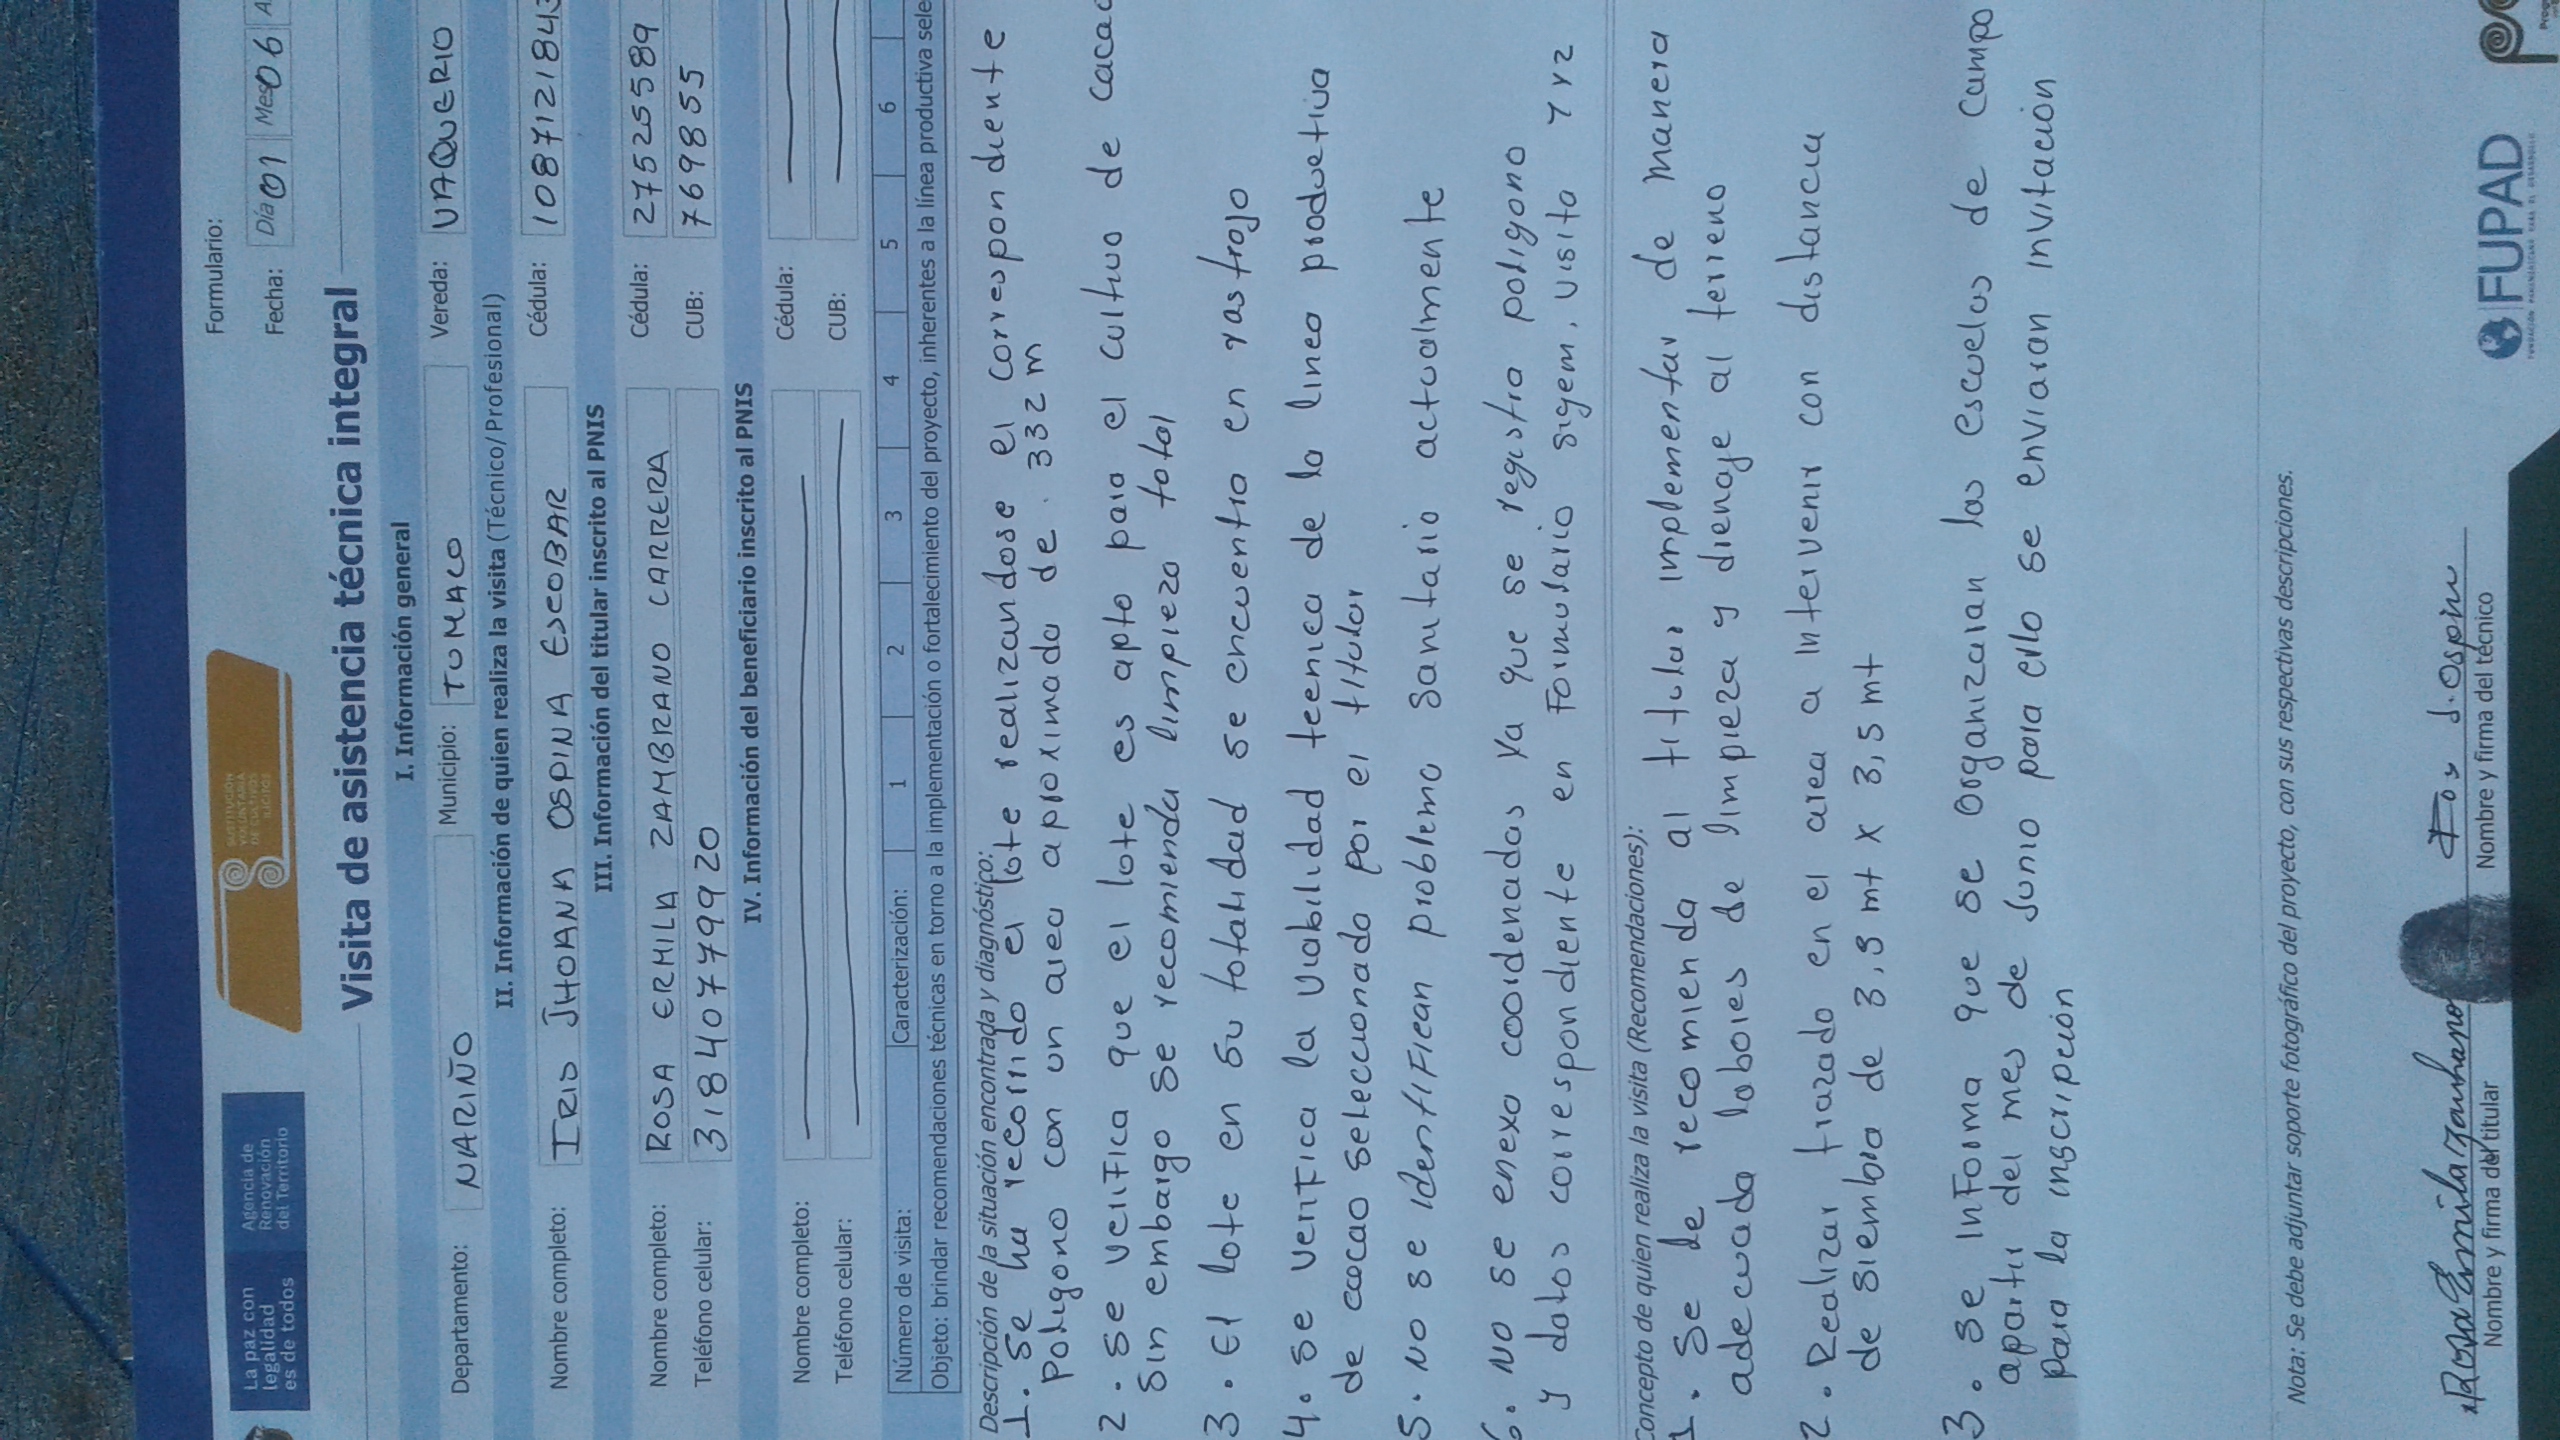 La paz con
legalidad
es de todos
Agencia de
Renovación
del Territorio
SUSTITUCIÓN
VOLUNTARIA
DE CULTIVOS
ILÍCITOS
Formulario:
Fecha: Día 01 Mes 06 A
Visita de asistencia técnica integral
I. Información general
Departamento: NARIÑO Municipio: TUMACO Vereda: VAQUERIO
II. Información de quien realiza la visita (Técnico/ Profesional)
Nombre completo: IRIS JHOANA OSPINA ESCOBAR Cédula: 108712184
III. Información del titular inscrito al PNIS
Nombre completo: ROSA ERMILA ZAMBRANO CARRERA Cédula: 27525589
Teléfono celular: 31840779920 CUB: 7698855
IV. Información del beneficiario inscrito al PNIS
Nombre completo: Cédula:
Teléfono celular: CUB:
Número de visita: Caracterización: 1 2 3 4 5 6
Objeto: brindar recomendaciones técnicas en torno a la implementación o fortalecimiento del proyecto, inherentes a la línea productiva sele
Descripción de la situación encontrada y diagnóstico:
1. Se ha recorrido el lote realizandose el correspondiente
poligono con un area aproximada de. 332 m
2. Se verifica que el lote es apto para el cultivo de cacao
Sin embargo se recomienda limpieza total
3. El lote en su totalidad se encuentra en rastrojo
4. Se verifica la viabilidad tecnica de la linea productiva
de cacao seleccionado por el titular
5. No se identifican problema sanitario actualmente
6. NO se enexa coordenadas ya que se registra poligono
y datos correspondiente en Formulario sygem, visita 1 y 2
Concepto de quien realiza la visita (Recomendaciones):
1. Se de recomienda al titular implementar de manera
adecuada labores de limpieza y drenaje al terreno
2. Realizar trazado en el area a intervenir con distancia
de siembra de 3,5 mt x 3,5 mt
3. Se informa que se organizaran las escuelas de campo
apartir del mes de Junio para ello se enviaran invitación
para la inscripción
Nota: Se debe adjuntar soporte fotográfico del proyecto, con sus respectivas descripciones.
Rosa Ermila Zambrano
Nombre y firma del titular
J. Ospina
Nombre y firma del técnico
FUPAD
FUNDACIÓN PANAMERICANA PARA EL DESARROLLO